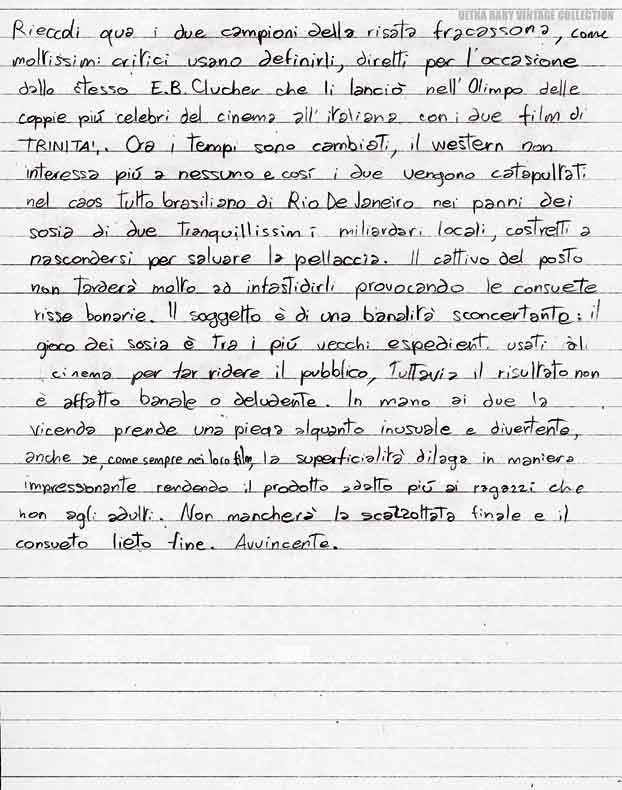 UETNA BABY VINTAGE COLLECTION
Rieccoli qua i due campioni della risata fracassona, come
moltissimi critici usano definirli, diretti per l'occasione
dallo stesso E.B. Clucher che li lanciò nell'Olimpo delle
coppie più celebri del cinema all'italiana con i due film di
TRINITA'. Ora i tempi sono cambiati, il western non
interessa più a nessuno e così i due vengono catapultati
nel caos tutto brasiliano di Rio De Janeiro nei panni dei
sosia di due tranquillissimi miliardari locali, costretti a
nascondersi per salvare la pellaccia. Il cattivo del posto
non tarderà molto ad infastidirli provocando le consuete
risse bonarie. Il soggetto è di una banalità sconcertante: il
gioco dei sosia è tra i più vecchi espedienti usati al
cinema per far ridere il pubblico, Tuttavia il risultato non
è affatto banale o deludente. In mano ai due la
vicenda prende una piega alquanto inusuale e divertente,
anche se, come sempre nei loro film, la superficialità dilaga in maniera
impressionante rendendo il prodotto adatto più ai ragazzi che
non agli adulti. Non mancherà la scazzottata finale e il
consueto lieto fine. Avvincente.